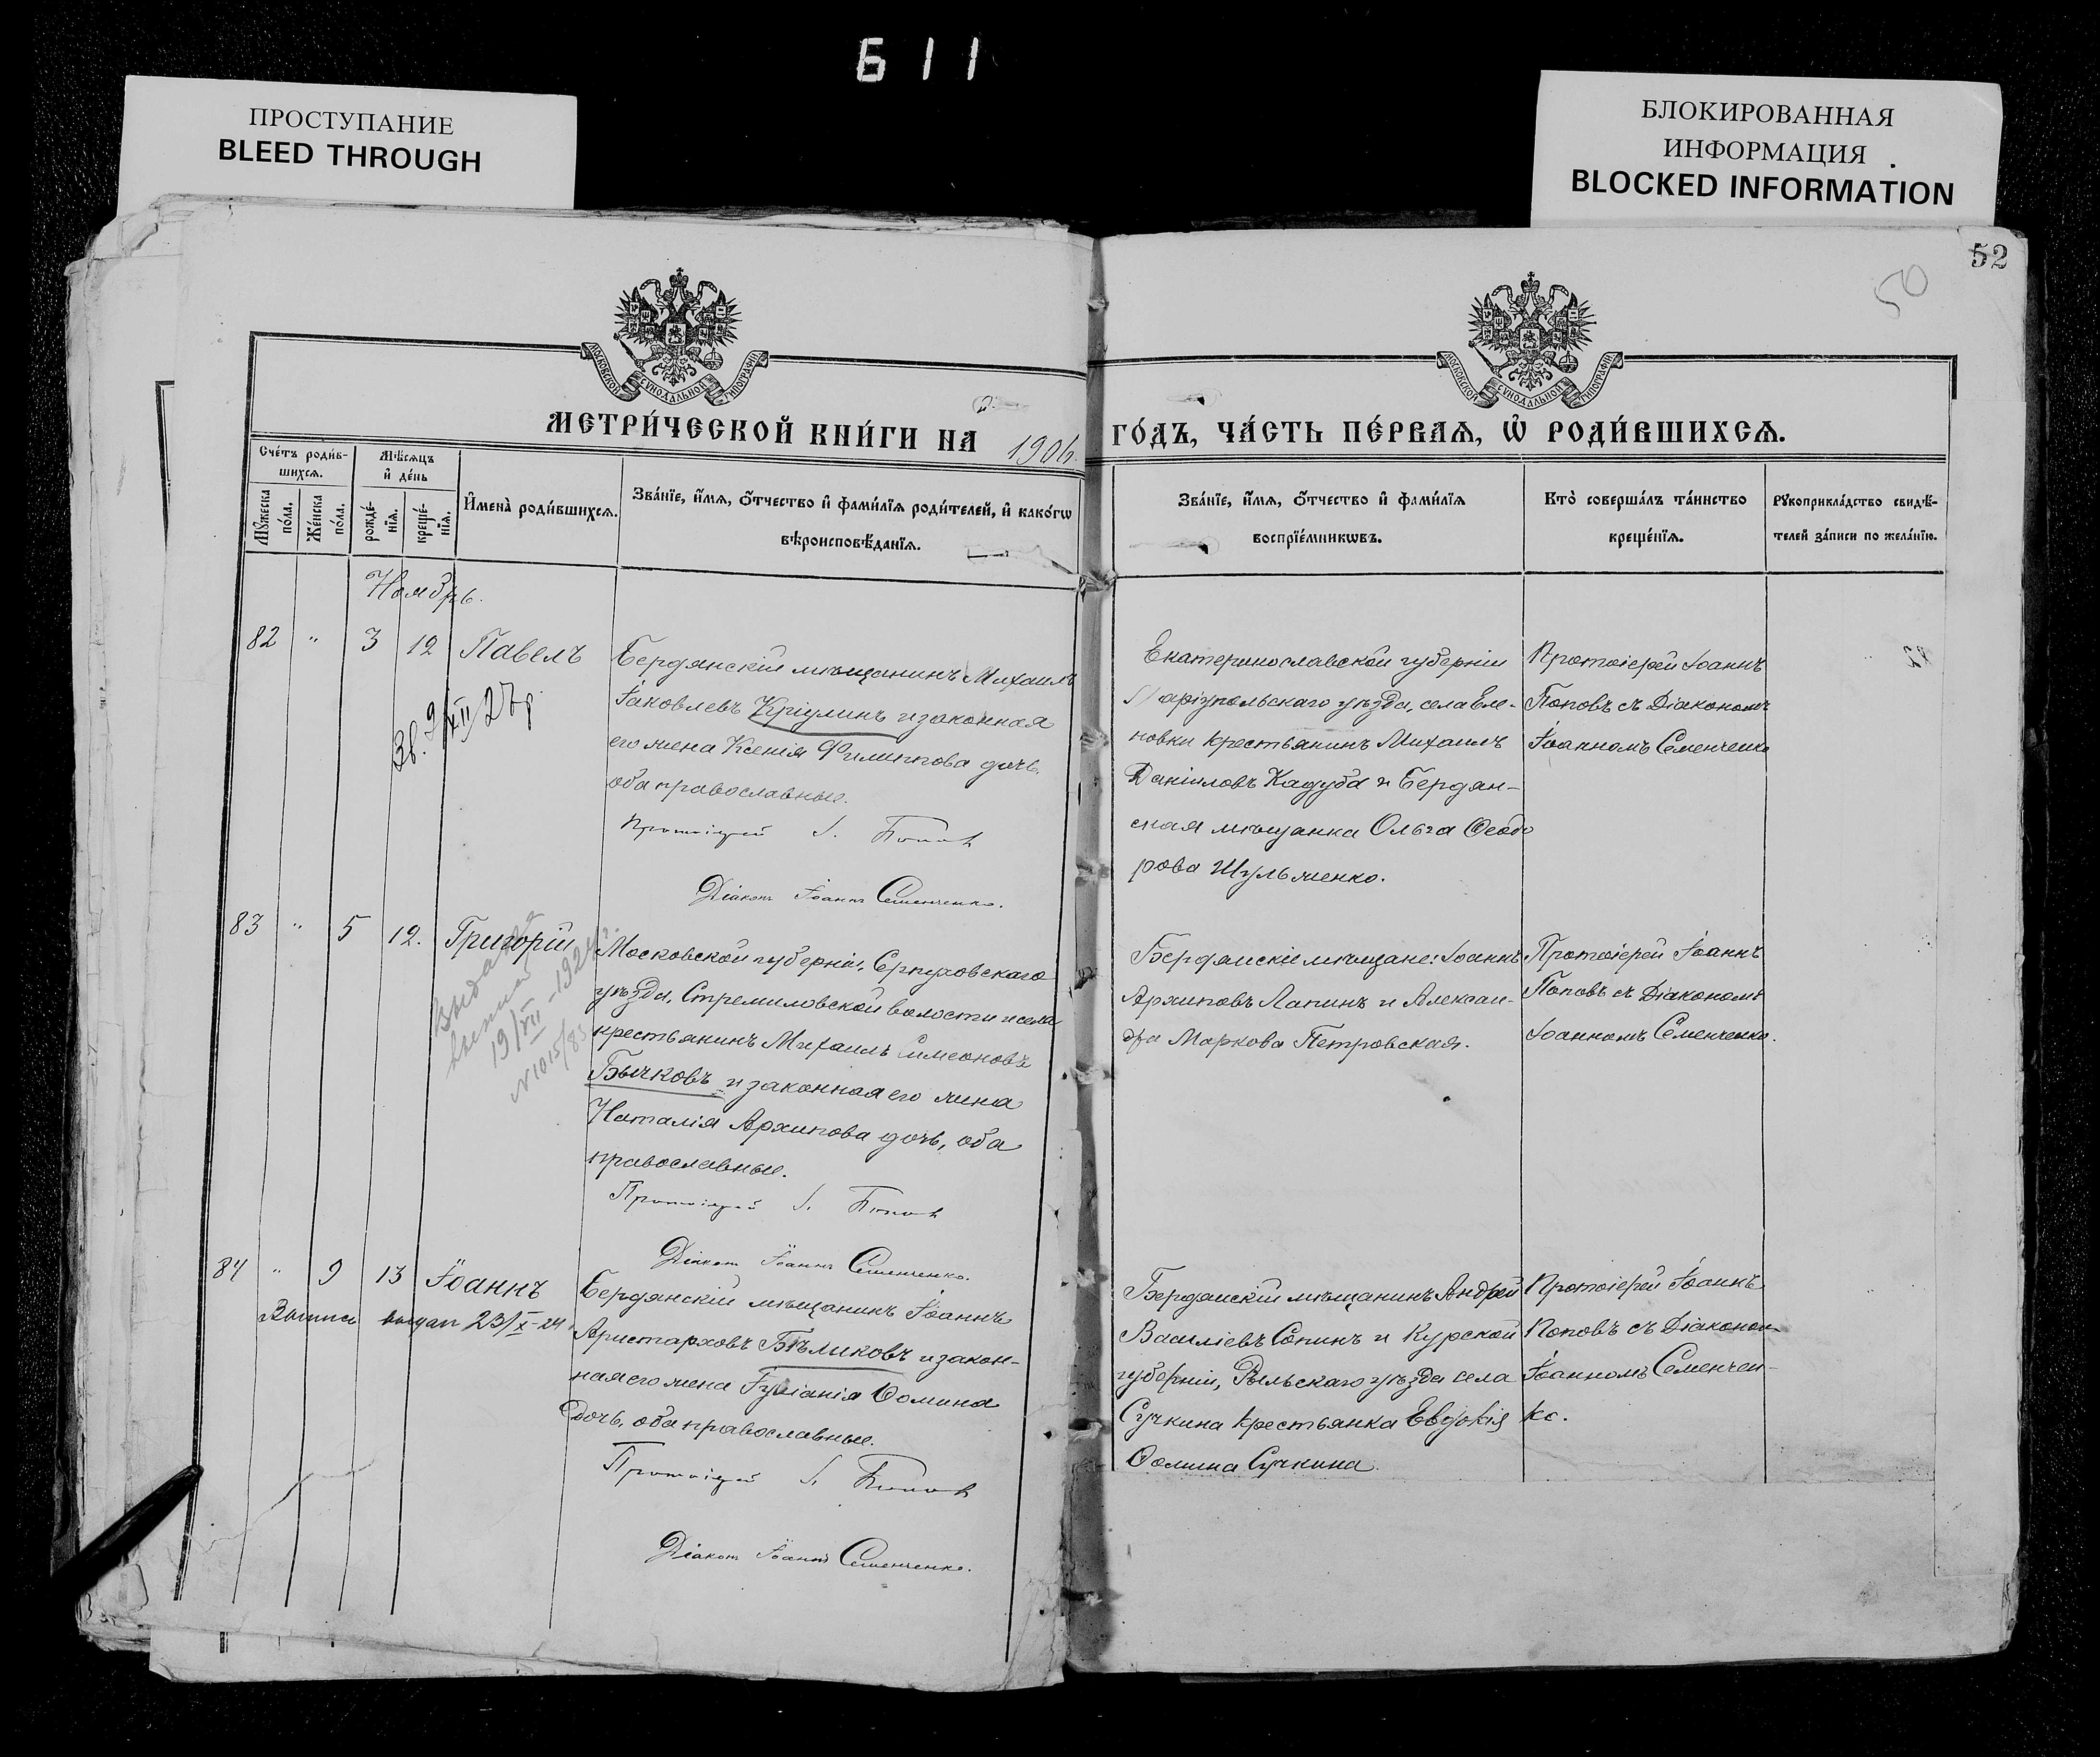 611
ПРОСТУПАНИЕ
BLEED THROUGH
БЛОКИРОВАННАЯ
ИНФОРМАЦИЯ
BLOCKED INFORMATION
52
50
МОСКОВСКОЙ СѴНОДАЛЬНОЙ ТИПОГРАФІИ
МОСКОВСКОЙ СѴНОДАЛЬНОЙ ТИПОГРАФІИ
МЕТРИ́ЧЕСКОЙ КНИ́ГИ НА 1906
ГО́ДЪ, ЧА́СТЬ ПЕ́РВАѦ, Ѡ҆ РОДИ́ВШИХСѦ.
Сче́тъ роди́в-
шихсѧ.
Мѣ́сѧцъ
и҆ де́нь
Мꙋ́жеска
по́ла.
Же́нска
по́ла.
рожде́-
нїѧ.
креще́-
нїѧ.
И҆мена̀ роди́вшихсѧ.
Зва́нїе, и҆́мѧ, ѻ҆́тчество и҆ фами́лїѧ роди́телей, и҆ како́гѡ
вѣроисповѣ́данїѧ.
Зва́нїе, и҆́мѧ, ѻ҆́тчество и҆ фами́лїѧ
воспрїе́мникѡвъ.
Кто̀ соверша́лъ та́инство
креще́нїѧ.
Рꙋкоприкла́дство свидѣ́-
телей за́писи по жела́нїю.
Ноябрь.
82 " 3 12 Павелъ
Бердянскій мѣщанинъ Михаилъ
Іаковлевъ Кріулинъ и законная
его жена Ксенія Филиппова дочь,
оба православные.
Протоіерей І. Попов
Діаконъ Іоаннъ Семенченко.
Зв. 9/XII 27 р
Екатеринославской губерніи
Маріупольскаго уѣзда, села Еле-
новки крестьянинъ Михаилъ
Даніиловъ Кадуба и Бердян-
ская мѣщанка Ольга Ѳеодо
рова Шульженко.
Протоіерей Іоаннъ
Поповъ съ Діакономъ
Іоанномъ Семенченко
83 " 5 12. Григорій
Московской губерніи, Серпуховскаго
уѣзда, Стремиловской волости и села
крестьянинъ Михаилъ Симеоновъ
Бычковъ и законная его жена
Наталія Архипова дочь, оба
православные.
Протоіерей І. Попов
Діаконъ Іоаннъ Семенченко.
19/VII - 1924 г.
N 1015/83
Бердянскіе мѣщане: Іоаннъ
Архиповъ Лапинъ и Алексан-
дра Маркова Петровская.
Протоіерей Іоаннъ
Поповъ съ Діакономъ
Іоанномъ Семенченко.
84 " 9 13 Іоаннъ
Выпись выдан 23/X-24
Бердянскій мѣщанинъ Іоаннъ
Аристарховъ Бѣликовъ и закон-
ная его жена Іуліанія Ѳомина
дочь, оба православные.
Протоіерей І. Попов
Діаконъ Іоаннъ Семенченко.
Бердянскій мѣщанинъ Андрей
Василіевъ Сопинъ и Курской
губерніи, Рыльскаго уѣзда села
Сучкина крестьянка Евдокія
Ѳомина Сучкина
Протоіерей Іоаннъ
Поповъ съ Діаконом
Іоанномъ Семенчен-
ко.